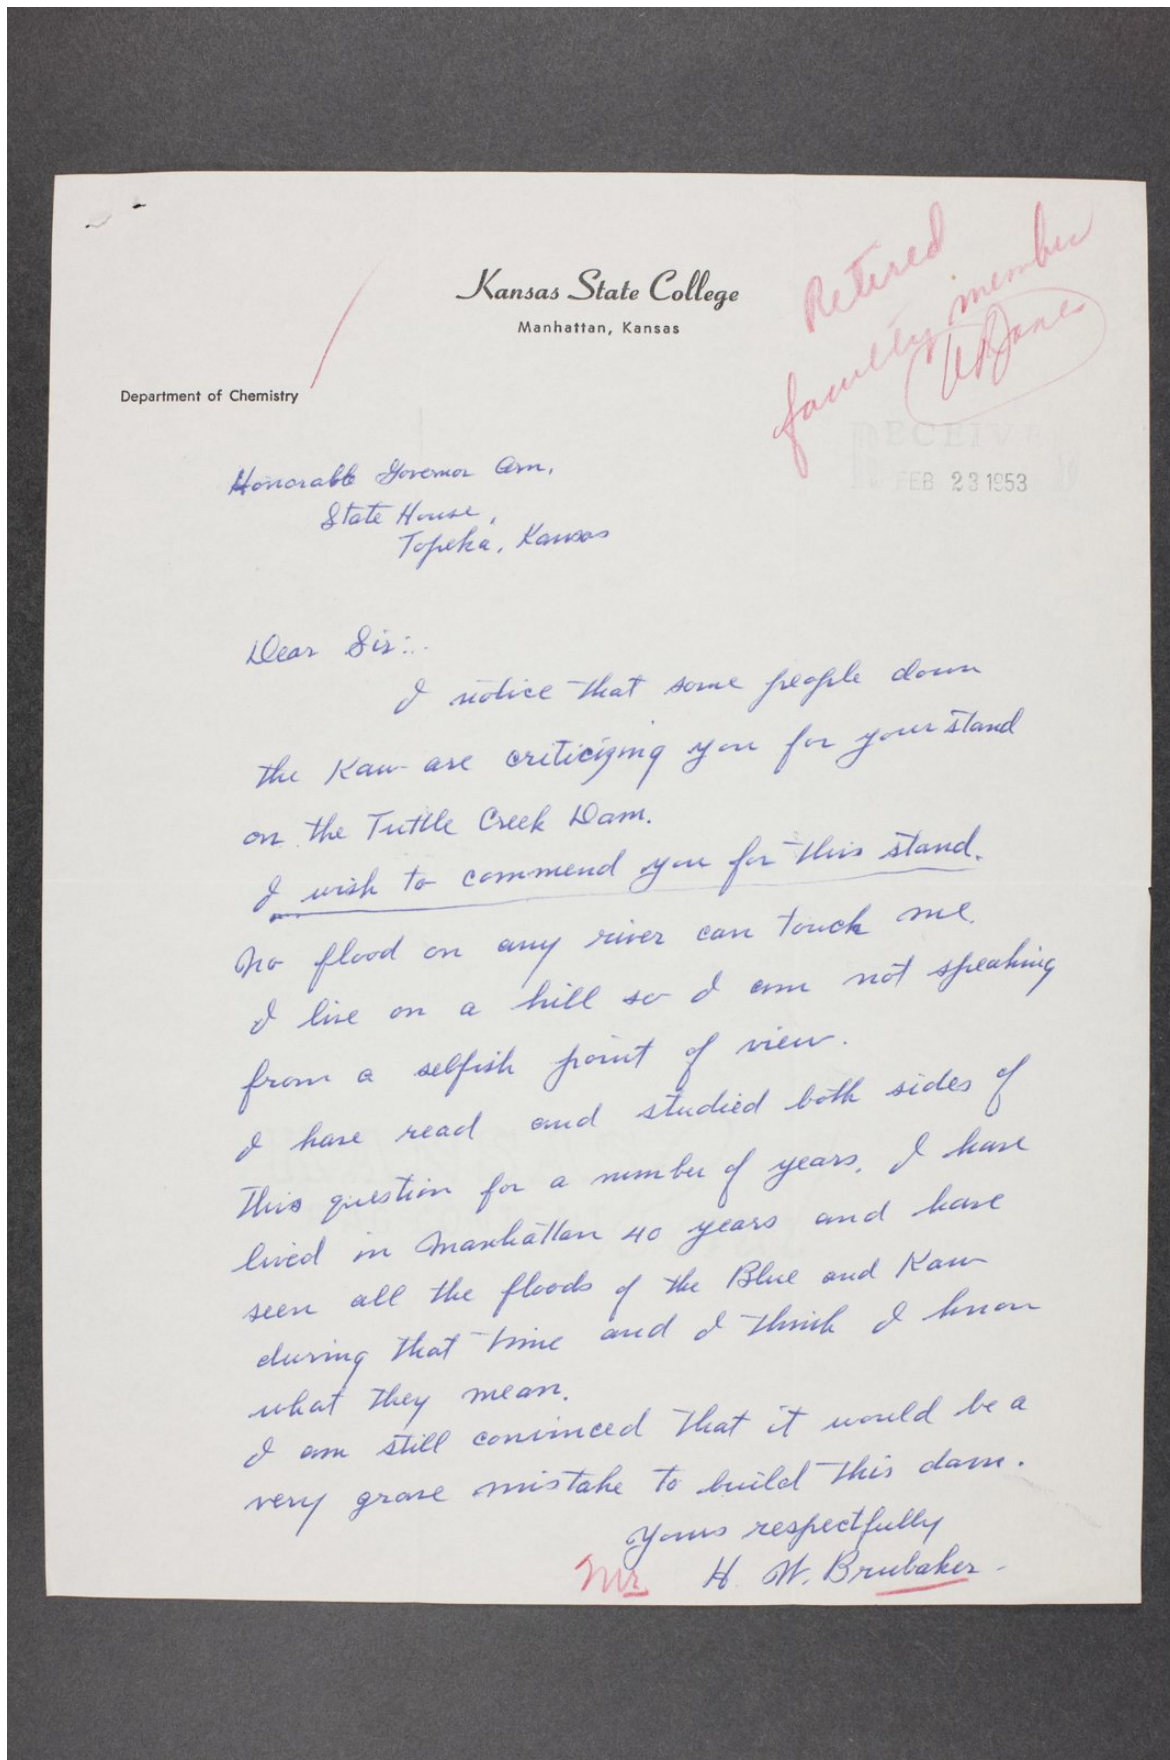 Kansas State College
Manhattan, Kansas
Retired
faculty member
Department of Chemistry
RECEIV
FEB 23 1953
Honorable Governor Arn,
State House,
Topeka, Kansas
Dear Sir:..
I notice that some people down
the Kaw are criticizing you for your stand
on the Tuttle Creek Dam.
I wish to commend you for this stand.
No flood on any river can touch me.
I live on a hill so I am not speaking
from a selfish point of view.
I have read and studied both sides of
this question for a number of years. I have
lived in Manhattan 40 years and have
seen all the floods of the Blue and Kaw
during that time and I think I know
what they mean.
I am still convinced that it would be a
very grave mistake to build this dam.
Yours respectfully
Mr H. W. Brubaker.